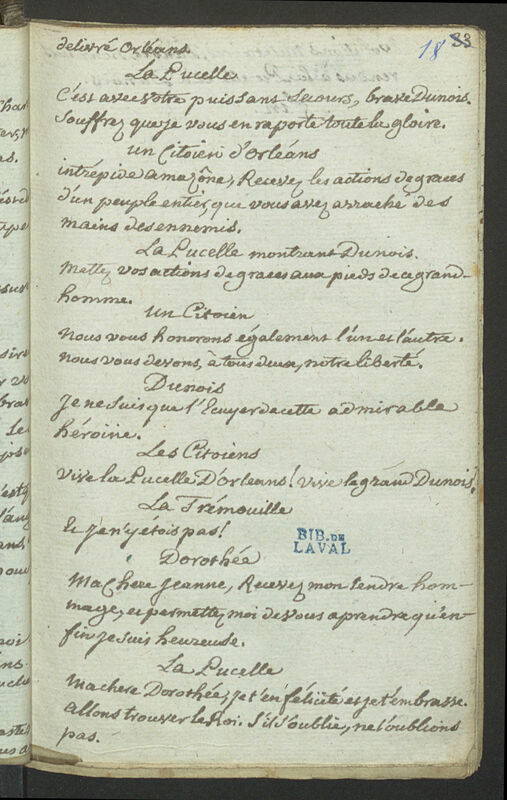 18 33
delivré Orléans.
La Pucelle
C'est avec votre puissans secours, brave Dunois.
Souffrez que je vous en raporte toute la gloire.
Un Citoien d'Orléans
intrépide amazône, Recevez les actions de graces
d'un peuple entier, que vous avez arraché des
mains des ennemis.
La Pucelle montrant Dunois.
Mettez vos actions de graces aux pieds de ce grand-
homme.
Un Citoien
Nous vous honorons également l'un et l'autre.
Nous vous devons, à tous deux, notre liberté.
Dunois
Je ne suis que l'Ecuyer de cette admirable
héroïne.
Les Citoiens
Vive la Pucelle D'orleans! Vive le grand Dunois!
La Trémouille
Et j'en'y étois pas!
Dorothée
Ma chere Jeanne, Recevez mon tendre hom-
mage, et permettez moi de vous aprendre qu'en-
fin je suis heureuse.
La Pucelle
Ma chere Dorothée, je t'en félicite et je t'embrasse.
Allons trouver le Roi. S'il s'oublie, ne l'oublions
pas.
BIB. DE
LAVAL